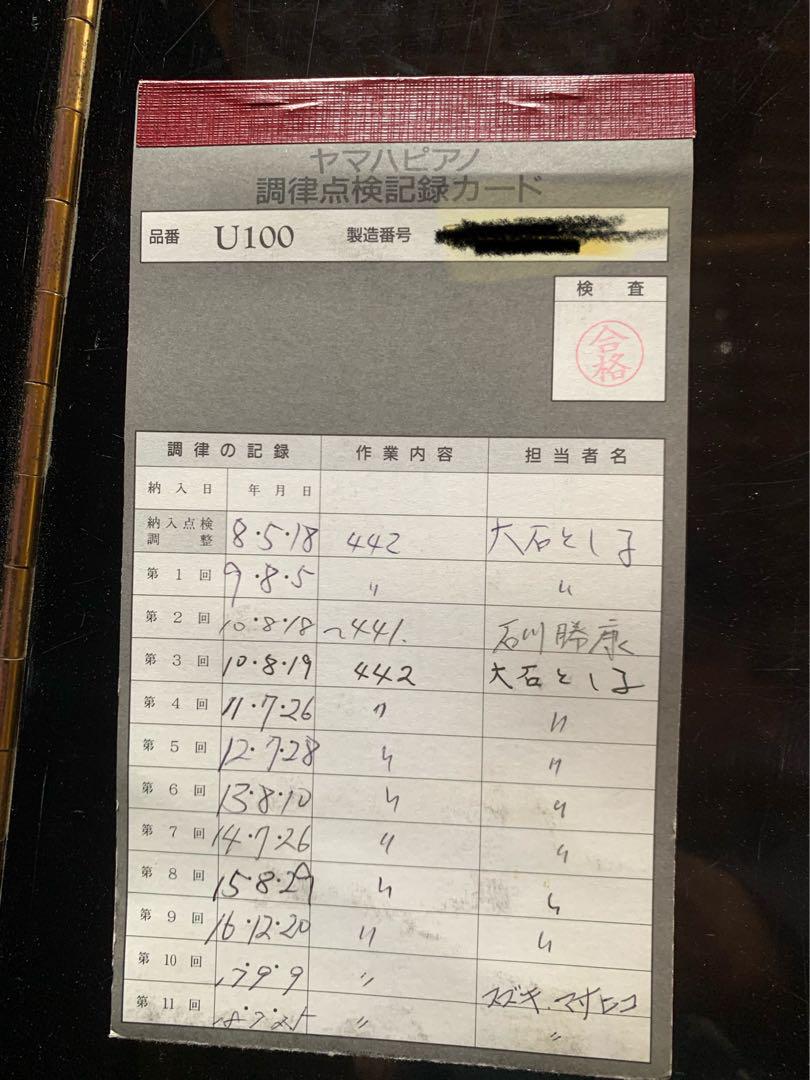 ヤマハピアノ
調律点検記録カード
品番 U100 製造番号
検 査
合格
調律の記録 作業内容 担当者名
納入日 年 月 日
納入点検調整 8・5・18 442 大石とし子
第 1 回 9・8・5 〃 〃
第 2 回 10・8・18 〜441. 石川勝康
第 3 回 10・8・19 442 大石とし子
第 4 回 11・7・26 〃 〃
第 5 回 12・7・28 〃 〃
第 6 回 13・8・10 〃 〃
第 7 回 14・7・26 〃 〃
第 8 回 15・8・29 〃 〃
第 9 回 16・12・20 〃 〃
第 10 回 17・9・9 〃 スズキ.マサヒコ
第 11 回 18・7・25 〃 〃